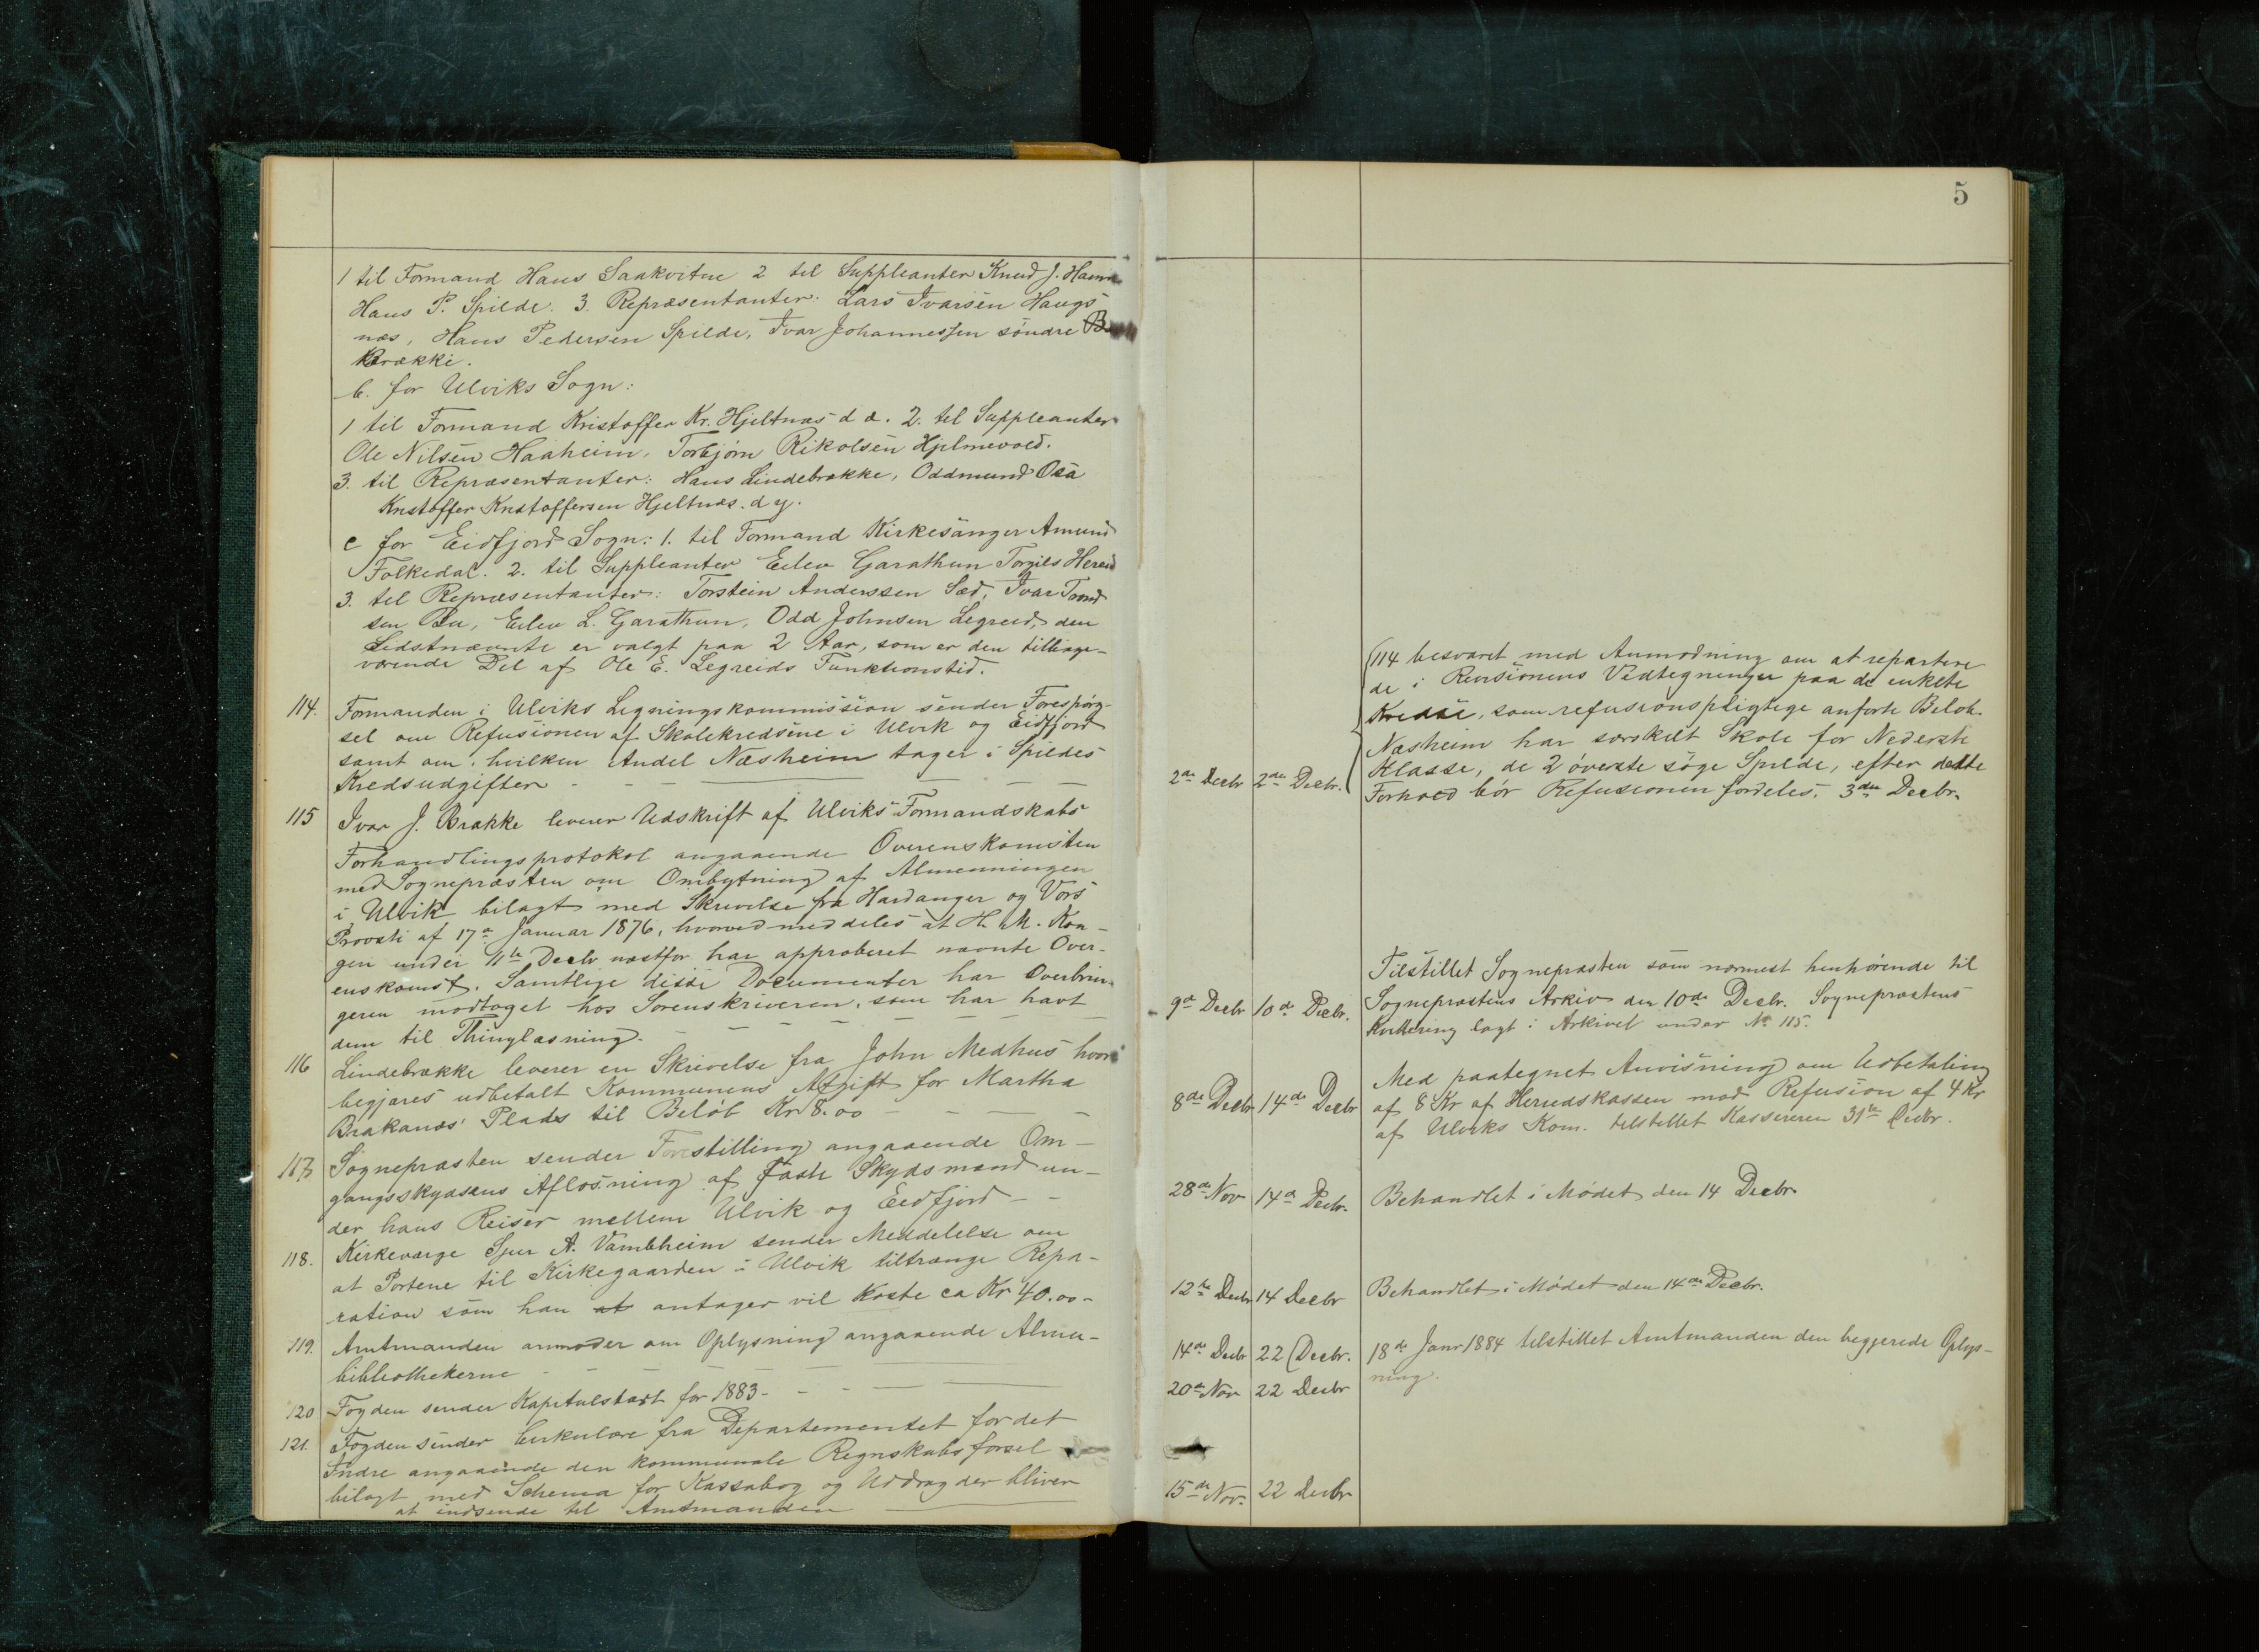 5
1 til Formand Hans Saakvitne 2 til Suppleanter Knud J. Hamre
Hans P. Spilde. 3. Repræsentanter: Lars Ivarsen Haugs-
næs, Hans Pedersen Spilde, Ivar Johannessen søndre
Brække.
b. for Ulviks Sogn:
1 til Formand Kristoffer Kr. Hjeltnæs d æ. 2. til Suppleanter
Ole Nilsen Haaheim, Torbjørn Rikolsen Hjelmevold.
3. til Repræsentanter: Hans Lindebrække, Oddmund Osa
Kristoffer Kristoffersen Hjeltnæs. d y.
c for Eidfjord Sogn: 1. til Formand Kirkesanger Amund
Folkedal. 2. til Suppleanter Eilev Garathun Torgils Hereid
3. til Repræsentanter: Torstein Anderssen Sæd, Ivar Trond-
sen Bu, Eilev L. Garathun, Odd Johnsen Legreid, den
Sidstnævnte er valgt paa 2 Aar, som er den tilbage-
værende Del af Ole E. Legreids Funktionstid.
114. Formanden i Ulviks Ligningskommission sender Forespørg-
sel om Refusionen af Skolekredsene i Ulvik og Eidfjord
samt om hvilken Andel Næsheim tager i Spildes
Kredsudgifter
2de Decbr 2den Decbr.
114 besvaret med Anmodning om at repartere
de i Revisionens Vedtegninger paa de enkelte
Kredse, som refusionspligtige anførte Beløb.
Næsheim har særskilt Skole for Nederste
Klasse, de 2 øverste søge Spilde, efter dette
Forhold bør Refusionen fordeles. 3die Decbr.
115 Ivar J. Brække leverer Udskrift af Ulviks Formandskabs
Forhandlingsprotokol angaaende Overenskomsten
med Sognepræsten om Ombytning af Almenningen
i Ulvik bilagt med Skrivelse fra Hardanger og Vors
Provsti af 17de Januar 1876, hvorved meddeles at H. M. Kon-
gen under 11te Decbr næstfør har approberet nævnte Over-
enskomst. Samtlige disse Documenter har Overbrin-
geren modtaget hos Sorenskriveren, som har havt
dem til Thinglæsning.
9de Decbr 10de Decbr.
Tilstillet Sognepræsten som nærmest henhørende til
Sognepræstens Arkiv den 10de Decbr. Sognepræstens
Kvittering lagt i Arkivet under No 115.
116 Lindebrække leverer en Skrivelse fra John Medhus hvori
begjæres udbetalt Kommunens Afgift for Martha
Brakanæs' Plads til Beløb Kr 8.00
8de Decbr 14de Decbr
Med paategnet Anvisning om Udbetaling
af 8 Kr af Herredskassen mod Refusion af 4 Kr
af Ulviks Kom. tilstillet Kassereren 31te Decbr.
117 Sognepræsten sender Forestilling angaaende Om-
gangsskydsens Afløsning af faste Skydsmænd un-
der hans Reiser mellem Ulvik og Eidfjord
28de Nov 14de Decbr.
Behandlet i Mødet den 14 Decbr
118. Kirkeværge Sjur A. Vambheim sender Meddelelse om
at Portene til Kirkegaarden i Ulvik tiltrænge Repa-
ration som han at antager vil koste ca Kr 40.00-
12te Decbr 14 Decbr
Behandlet i Mødet den 14de Decbr.
119. Amtmanden anmoder om Oplysning angaaende Almu-
bibliothekerne
14de Decbr 22 Decbr.
18de Janr 1884 tilstillet Amtmanden den begjerede Oplys-
ning.
120 Fogden sender Kapitulstaxt for 1883-
20de Nov 22 Decbr
121. Fogden sender Cirkulære fra Departementet for det
Indre angaaende den kommunale Regnskabsførsel
bilagt med Schema for Kassabog og Uddrag der bliver
at indsende til Amtmanden
15de Nov. 22 Decbr